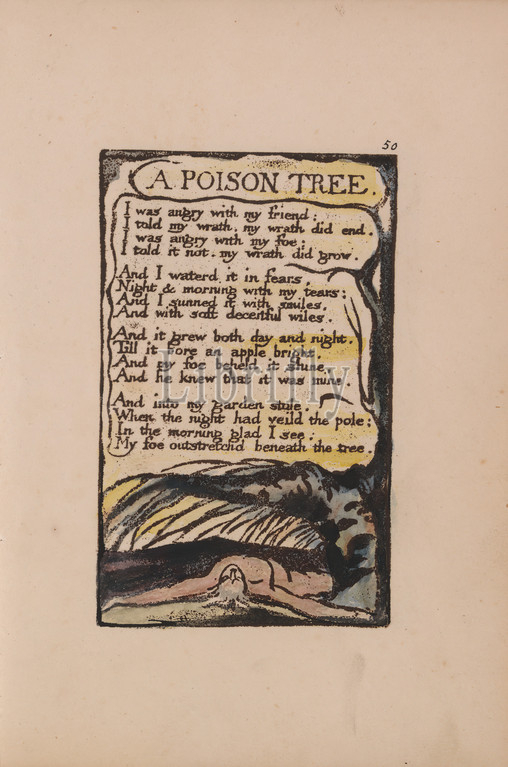 50
A POISON TREE.
I was angry with my friend:
I told my wrath, my wrath did end.
I was angry with my foe:
I told it not, my wrath did grow.
And I waterd it in fears,
Night & morning with my tears:
And I sunned it with smiles,
And with soft deceitful wiles.
And it grew both day and night.
Till it bore an apple bright.
And my foe beheld it shine.
And he knew that it was mine.
And into my garden stole.
When the night had veild the pole;
In the morning glad I see,
My foe outstretchd beneath the tree.
Librifly